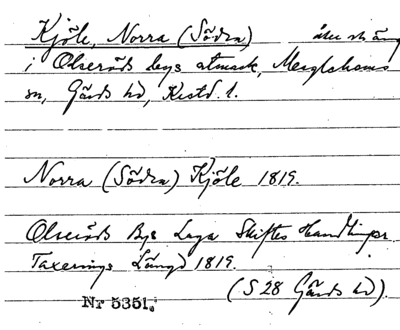 Kjöle, Norra (Södra) åker o äng
i Olseröds bys utmark, Maglehems
sn, Gärds hd, Krstd. l.
Norra (Södra) Kjöle 1819.
Olseröds Bys Laga Skiftes Handlingar.
Taxerings Längd 1819.
(S 28 Gärds hd).
Nr 5351.